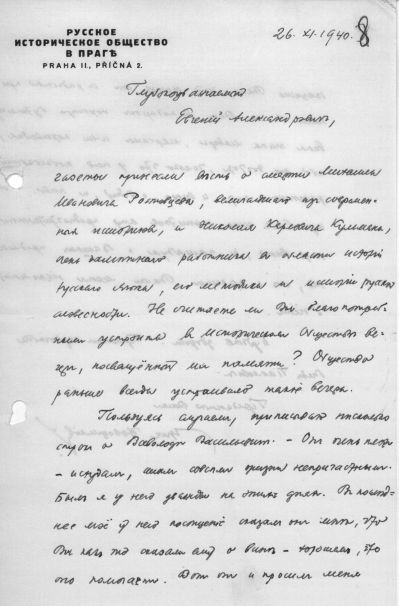 РУССКОЕ
ИСТОРИЧЕСКОЕ ОБЩЕСТВО
В ПРАГѢ
PRAHA II., PŘÍČNÁ 2.
26. XI. 1940. 8
Глубокоуважаемый
Евгений Александрович,
газеты принесли весть о смерти Михаила
Ивановича Ростовцева, величайшего из современ-
ных историков, и Николая Карловича Кульмана,
очень заметного работника в области истории
русского языка, его методики и истории русской
словесности. Не считаете ли Вы благопотреб-
ным устроить в Историческом Обществе ве-
чер, посвящённый их памяти? Общество
раньше всегда устраивало такие вечера.
Пользуясь случаем, приписываю несколько
строк о Всеволоде Васильевиче. – Он очень
– исхудал, стал совсем жизни непричастным.
Был я у него дважды на этих днях. В послед-
нее моё у него посещение сказал он мне, что
Вы как то сказали ему о вине – хорошо, что
оно помогает. Вот он и просил меня